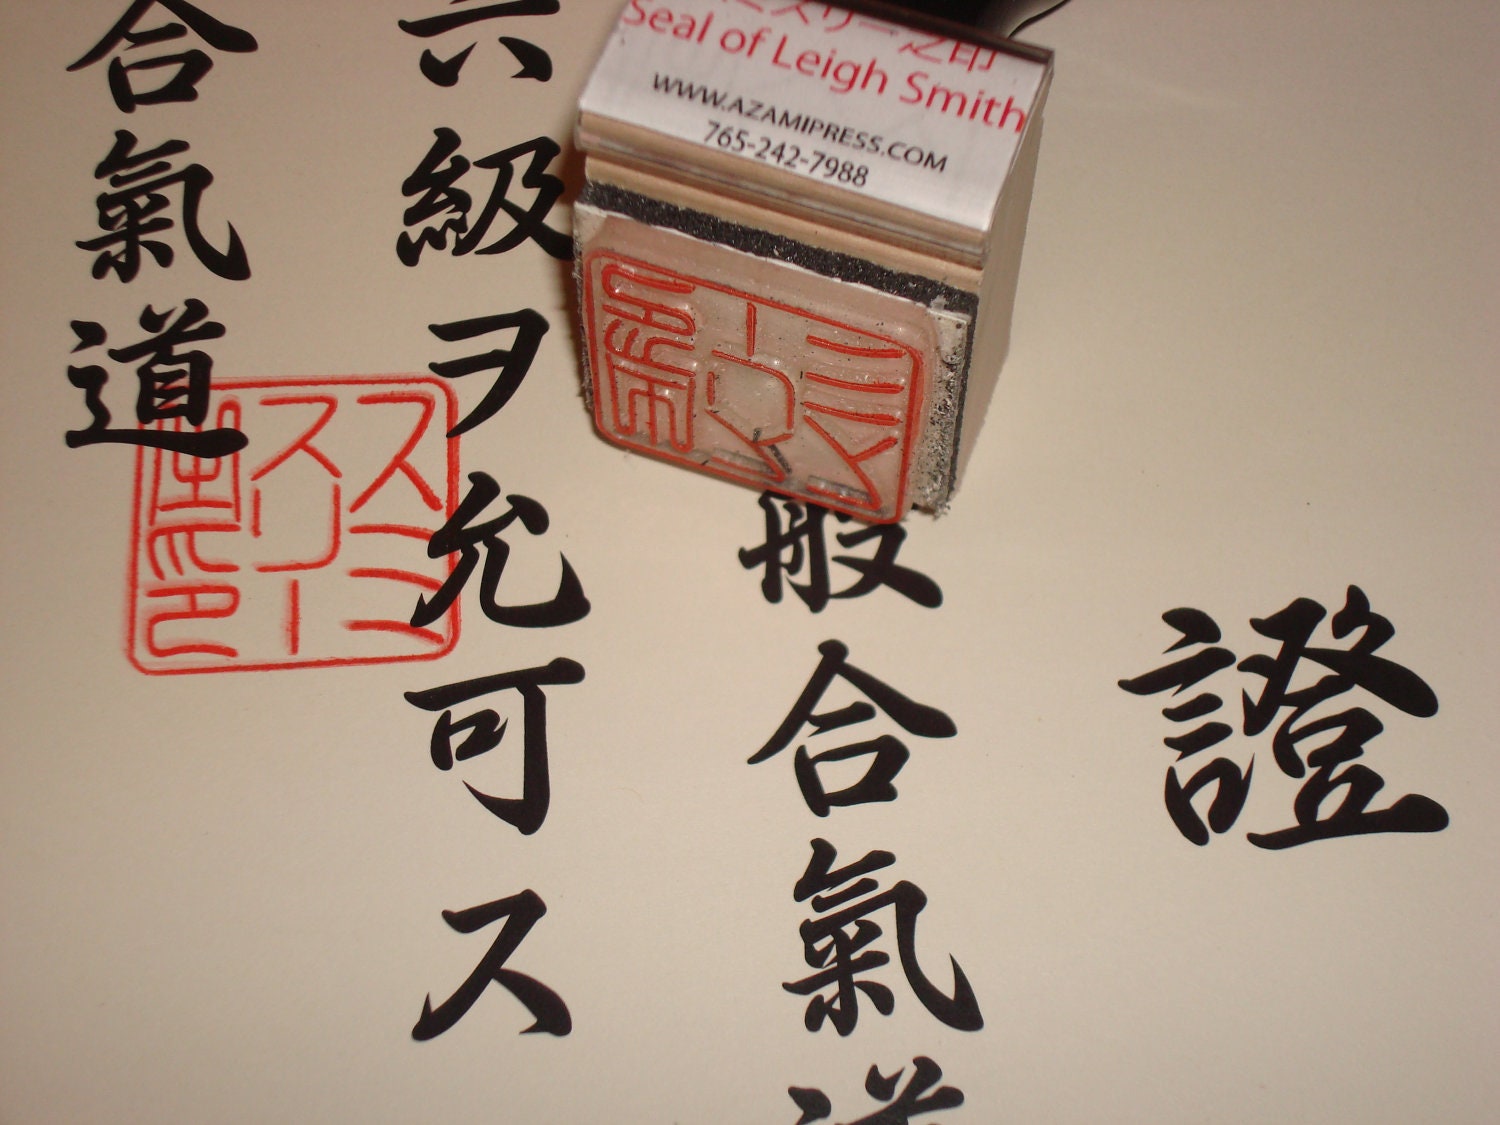 證
般合氣道
六級ヲ允可ス
合氣道
スミ
スリー
之印
ミスリー之印
Seal of Leigh Smith
WWW.AZAMIPRESS.COM
765-242-7988